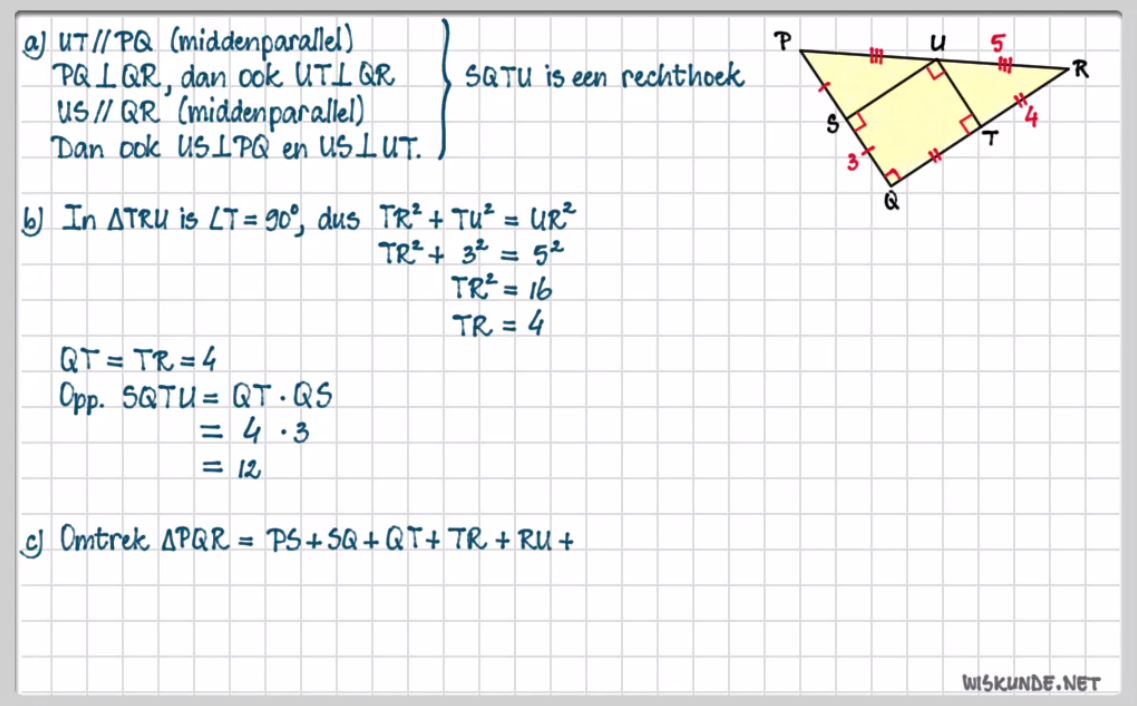 a) UT // PQ (middenparallel)
PQ ⊥ QR, dan ook UT ⊥ QR
US // QR (middenparallel)
Dan ook US ⊥ PQ en US ⊥ UT.
SQTU is een rechthoek
P
U
5
R
S
4
T
3
Q
b) In ΔTRU is ∠T = 90°, dus TR² + TU² = UR²
TR² + 3² = 5²
TR² = 16
TR = 4
QT = TR = 4
Opp. SQTU = QT · QS
= 4 · 3
= 12
c) Omtrek ΔPQR = PS + SQ + QT + TR + RU +
WISKUNDE.NET